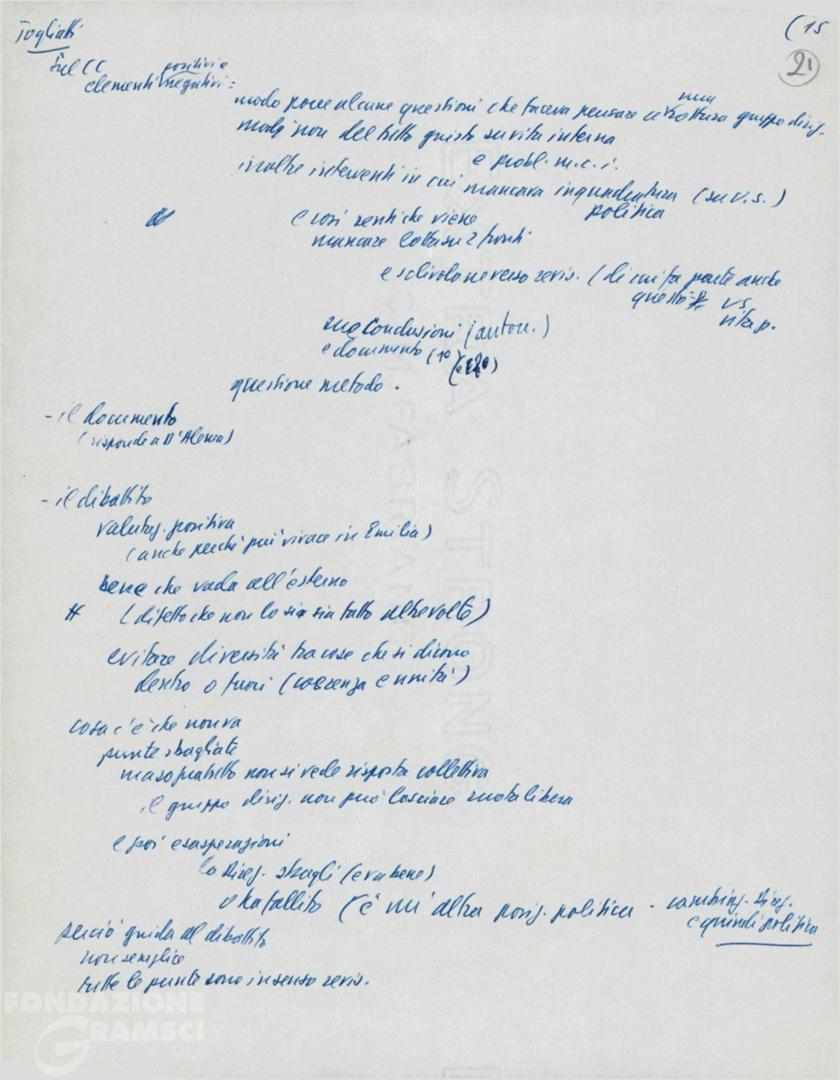 Togliatti
(15
21
Sul CC
positivi e
elementi negativi:
modo porre alcune questioni che faceva pensare a una rottura gruppo dirig.
modi non del tutto giusti su vita interna
e probl. m.c.i.
inoltre interventi in cui mancava inquadratura (su v.s.)
politica
e così senti che viene
mancare lotta su 2 fronti
e scivolone verso revis. (di cui fa parte anche
questo vs
vita p.
sue conclusioni (auton.)
e documento (1° e 2°)
questione metodo.
- il documento
(risponde a D'Alema)
- il dibattito
valutaz. positiva
(anche perché più vivace in Emilia)
bene che vada all'esterno
# (difetto che non lo si sia fatto altre volte)
evitare diversità tra cose che si dicono
dentro o fuori (coerenza e unità)
cosa c'è che non va
punte sbagliate
ma soprattutto non si vede risposta collettiva
il gruppo dirig. non può lasciare ruota libera
e poi esasperazioni
la Direz. sbagli (e va bene)
o ha fallito (è un'altra posiz. politica - cambiaz. Direz.
e quindi politica
perciò guida al dibattito
non semplice
tutte le punte sono in senso revis.
FONDAZIONE
GRAMSCI
EXTRA STRONG